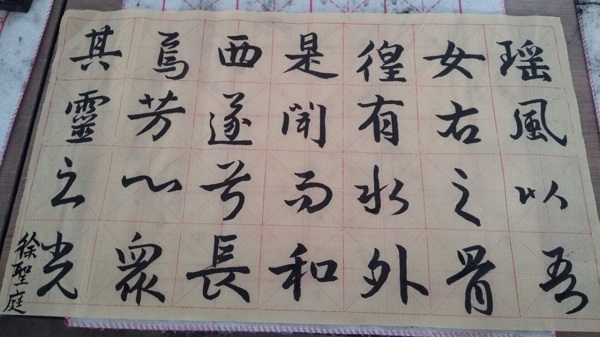 瑶風以吾
女右之骨
徨有水外
是聞而和
西遂兮長
焉芳心眾
其靈之光
徐聖庭